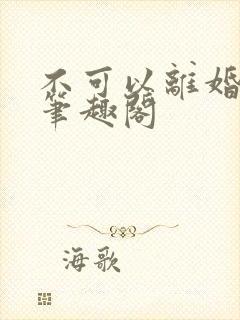 不可以離婚
筆趣閣
海歌